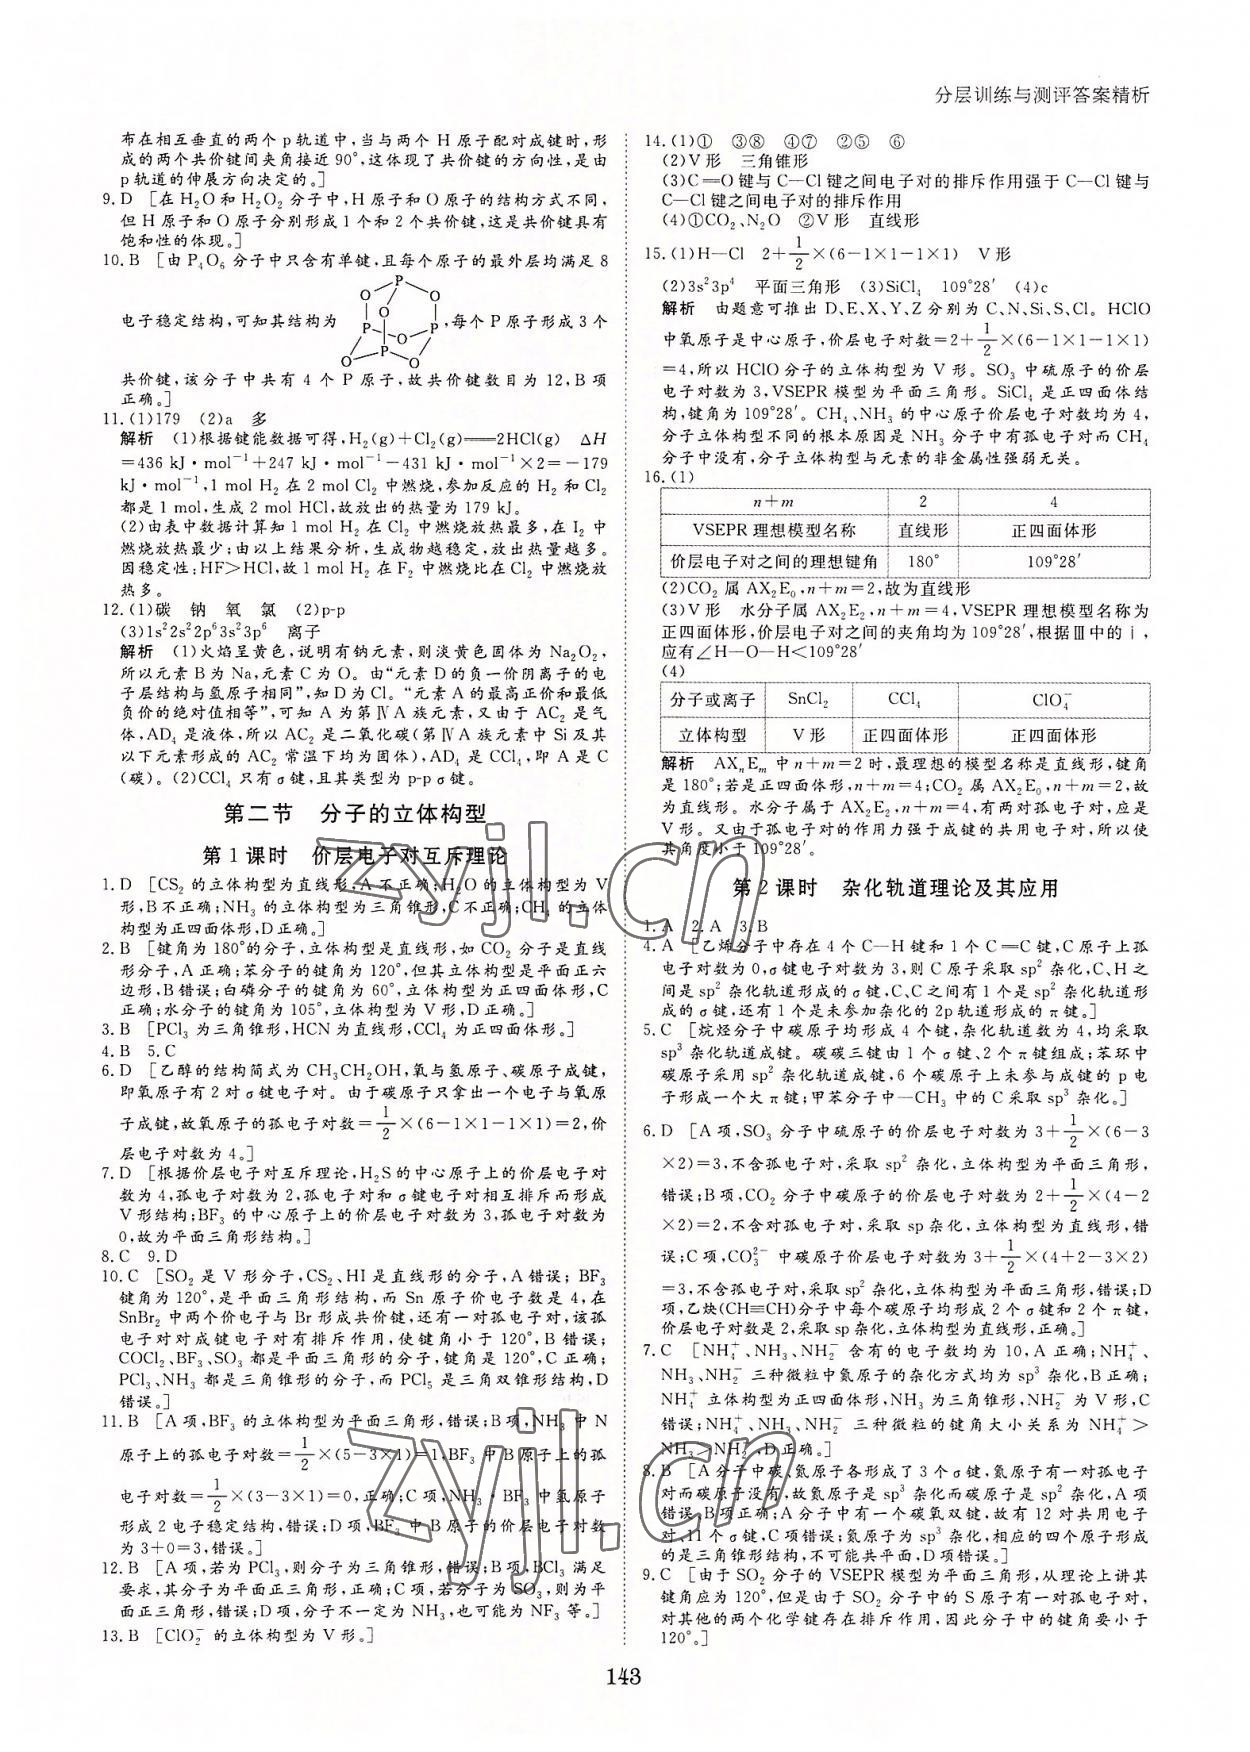 分层训练与测评答案精析
布在相互垂直的两个 p 轨道中,当与两个 H 原子配对成键时,形
成的两个共价键间夹角接近 90°,这体现了共价键的方向性,是由
p 轨道的伸展方向决定的。]
9. D [在 H₂O 和 H₂O₂ 分子中,H 原子和 O 原子的结构方式不同,
但 H 原子和 O 原子分别形成 1 个和 2 个共价键,这是共价键具有
饱和性的体现。]
10. B [由 P₄O₆ 分子中只含有单键,且每个原子的最外层均满足 8
电子稳定结构,可知其结构为
P O O O O P P P O O
,每个 P 原子形成 3 个
共价键,该分子中共有 4 个 P 原子,故共价键数目为 12,B 项
正确。]
11. (1)179 (2)a 多
解析 (1)根据键能数据可得,H₂(g)+Cl₂(g)══2HCl(g) ΔH
=436 kJ·mol⁻¹+247 kJ·mol⁻¹-431 kJ·mol⁻¹×2=-179
kJ·mol⁻¹,1 mol H₂ 在 2 mol Cl₂ 中燃烧,参加反应的 H₂ 和 Cl₂
都是 1 mol,生成 2 mol HCl,故放出的热量为 179 kJ。
(2)由表中数据计算知 1 mol H₂ 在 Cl₂ 中燃烧放热最多,在 I₂ 中
燃烧放热最少;由以上结果分析,生成物越稳定,放出热量越多。
因稳定性:HF>HCl,故 1 mol H₂ 在 F₂ 中燃烧比在 Cl₂ 中燃烧放
热多。
12. (1)碳 钠 氧 氯 (2)p-p
(3)1s²2s²2p⁶3s²3p⁶ 离子
解析 (1)火焰呈黄色,说明有钠元素,则淡黄色固体为 Na₂O₂,
所以元素 B 为 Na,元素 C 为 O。由“元素 D 的负一价阴离子的电
子层结构与氩原子相同”,知 D 为 Cl。“元素 A 的最高正价和最低
负价的绝对值相等”,可知 A 为第ⅣA 族元素,又由于 AC₂ 是气
体,AD₄ 是液体,所以 AC₂ 是二氧化碳(第ⅣA 族元素中 Si 及其
以下元素形成的 AC₂ 常温下均为固体),AD₄ 是 CCl₄,即 A 是 C
(碳)。(2)CCl₄ 只有 σ 键,且其类型为 p-p σ 键。
第二节 分子的立体构型
第 1 课时 价层电子对互斥理论
1. D [CS₂ 的立体构型为直线形,A 不正确;H₂O 的立体构型为 V
形,B 不正确;NH₃ 的立体构型为三角锥形,C 不正确;CH₄ 的立体
构型为正四面体形,D 正确。]
2. B [键角为 180°的分子,立体构型是直线形,如 CO₂ 分子是直线
形分子,A 正确;苯分子的键角为 120°,但其立体构型是平面正六
边形,B 错误;白磷分子的键角为 60°,立体构型为正四面体形,C
正确;水分子的键角为 105°,立体构型为 V 形,D 正确。]
3. B [PCl₃ 为三角锥形,HCN 为直线形,CCl₄ 为正四面体形。]
4. B 5. C
6. D [乙醇的结构简式为 CH₃CH₂OH,氧与氢原子、碳原子成键,
即氧原子有 2 对 σ 键电子对。由于碳原子只拿出一个电子与氧原
子成键,故氧原子的孤电子对数=1/2×(6-1×1-1×1)=2,价
层电子对数为 4。]
7. D [根据价层电子对互斥理论,H₂S 的中心原子上的价层电子对
数为 4,孤电子对数为 2,孤电子对和 σ 键电子对相互排斥而形成
V 形结构;BF₃ 的中心原子上的价层电子对数为 3,孤电子对数为
0,故为平面三角形结构。]
8. C 9. D
10. C [SO₂ 是 V 形分子,CS₂、HI 是直线形的分子,A 错误;BF₃
键角为 120°,是平面三角形结构,而 Sn 原子价电子数是 4,在
SnBr₂ 中两个价电子与 Br 形成共价键,还有一对孤电子对,该孤
电子对对成键电子对有排斥作用,使键角小于 120°,B 错误;
COCl₂、BF₃、SO₃ 都是平面三角形的分子,键角是 120°,C 正确;
PCl₃、NH₃ 都是三角锥形的分子,而 PCl₅ 是三角双锥形结构,D
错误。]
11. B [A 项,BF₃ 的立体构型为平面三角形,错误;B 项,NH₃ 中 N
原子上的孤电子对数=1/2×(5-3×1)=1,BF₃ 中 B 原子上的孤
电子对数=1/2×(3-3×1)=0,正确;C 项,NH₃·BF₃ 中氢原子
形成 2 电子稳定结构,错误;D 项,BF₃ 中 B 原子的价层电子对数
为 3+0=3,错误。]
12. B [A 项,若为 PCl₃,则分子为三角锥形,错误;B 项,BCl₃ 满足
要求,其分子为平面正三角形,正确;C 项,若分子为 SO₃,则为平
面正三角形,错误;D 项,分子不一定为 NH₃,也可能为 NF₃ 等。]
13. B [ClO₂⁻ 的立体构型为 V 形。]
14. (1)① ③⑧ ④⑦ ②⑤ ⑥
(2)V 形 三角锥形
(3)C═O 键与 C—Cl 键之间电子对的排斥作用强于 C—Cl 键与
C—Cl 键之间电子对的排斥作用
(4)①CO₂、N₂O ②V 形 直线形
15. (1)H—Cl 2+1/2×(6-1×1-1×1) V 形
(2)3s²3p⁴ 平面三角形 (3)SiCl₄ 109°28′ (4)c
解析 由题意可推出 D、E、X、Y、Z 分别为 C、N、Si、S、Cl。HClO
中氧原子是中心原子,价层电子对数=2+1/2×(6-1×1-1×1)
=4,所以 HClO 分子的立体构型为 V 形。SO₃ 中硫原子的价层
电子对数为 3,VSEPR 模型为平面三角形。SiCl₄ 是正四面体结
构,键角为 109°28′。CH₄、NH₃ 的中心原子价层电子对数均为 4,
分子立体构型不同的根本原因是 NH₃ 分子中有孤电子对而 CH₄
分子中没有,分子立体构型与元素的非金属性强弱无关。
16. (1)
n+m 2 4
VSEPR 理想模型名称 直线形 正四面体形
价层电子对之间的理想键角 180° 109°28′
(2)CO₂ 属 AX₂E₀,n+m=2,故为直线形
(3)V 形 水分子属 AX₂E₂,n+m=4,VSEPR 理想模型名称为
正四面体形,价层电子对之间的夹角均为 109°28′,根据Ⅲ中的ⅰ,
应有∠H—O—H<109°28′
(4)
分子或离子 SnCl₂ CCl₄ ClO₄⁻
立体构型 V 形 正四面体形 正四面体形
解析 AXₙEₘ 中 n+m=2 时,最理想的模型名称是直线形,键角
是 180°;若是正四面体形,n+m=4;CO₂ 属于 AX₂E₀,n+m=2,故
为直线形。水分子属于 AX₂E₂,n+m=4,有两对孤电子对,应是
V 形。又由于孤电子对的作用力强于成键的共用电子对,所以使
其角度小于 109°28′。
第 2 课时 杂化轨道理论及其应用
1. A 2. A 3. B
4. A [乙烯分子中存在 4 个 C—H 键和 1 个 C═C 键,C 原子上孤
电子对数为 0,σ 键电子对数为 3,则 C 原子采取 sp² 杂化,C、H 之
间是 sp² 杂化轨道形成的 σ 键,C、C 之间有 1 个是 sp² 杂化轨道形
成的 σ 键,还有 1 个是未参加杂化的 2p 轨道形成的 π 键。]
5. C [烷烃分子中碳原子均形成 4 个键,杂化轨道数为 4,均采取
sp³ 杂化轨道成键。碳碳三键由 1 个 σ 键、2 个 π 键组成;苯环中
碳原子采用 sp² 杂化轨道成键,6 个碳原子上未参与成键的 p 电
子形成一个大 π 键;甲苯分子中—CH₃ 中的 C 采取 sp³ 杂化。]
6. D [A 项,SO₃ 分子中硫原子的价层电子对数为 3+1/2×(6-3
×2)=3,不含孤电子对,采取 sp² 杂化,立体构型为平面三角形,
错误;B 项,CO₂ 分子中碳原子的价层电子对数为 2+1/2×(4-2
×2)=2,不含对孤电子对,采取 sp 杂化,立体构型为直线形,错
误;C 项,CO₃²⁻ 中碳原子价层电子对数为 3+1/2×(4+2-3×2)
=3,不含孤电子对,采取 sp² 杂化,立体构型为平面三角形,错误;D
项,乙炔(CH≡CH)分子中每个碳原子均形成 2 个 σ 键和 2 个 π 键,
价层电子对数是 2,采取 sp 杂化,立体构型为直线形,正确。]
7. C [NH₄⁺、NH₃、NH₂⁻ 含有的电子数均为 10,A 正确;NH₄⁺、
NH₃、NH₂⁻ 三种微粒中氮原子的杂化方式均为 sp³ 杂化,B 正确;
NH₄⁺ 立体构型为正四面体形,NH₃ 为三角锥形,NH₂⁻ 为 V 形,C
错误;NH₄⁺、NH₃、NH₂⁻ 三种微粒的键角大小关系为 NH₄⁺>
NH₃>NH₂⁻,D 正确。]
8. B [A 分子中碳、氮原子各形成了 3 个 σ 键,氮原子有一对孤电子
对而碳原子没有,故氮原子是 sp³ 杂化而碳原子是 sp² 杂化,A 项
错误,B 项正确;A 分子中有一个碳氧双键,故有 12 对共用电子
对、11 个 σ 键,C 项错误;氮原子为 sp³ 杂化,相应的四个原子形成
的是三角锥形结构,不可能共平面,D 项错误。]
9. C [由于 SO₂ 分子的 VSEPR 模型为平面三角形,从理论上讲其
键角应为 120°,但是由于 SO₂ 分子中的 S 原子有一对孤电子对,
对其他的两个化学键存在排斥作用,因此分子中的键角要小于
120°。]
143
zyjl.cn
zyjl.cn